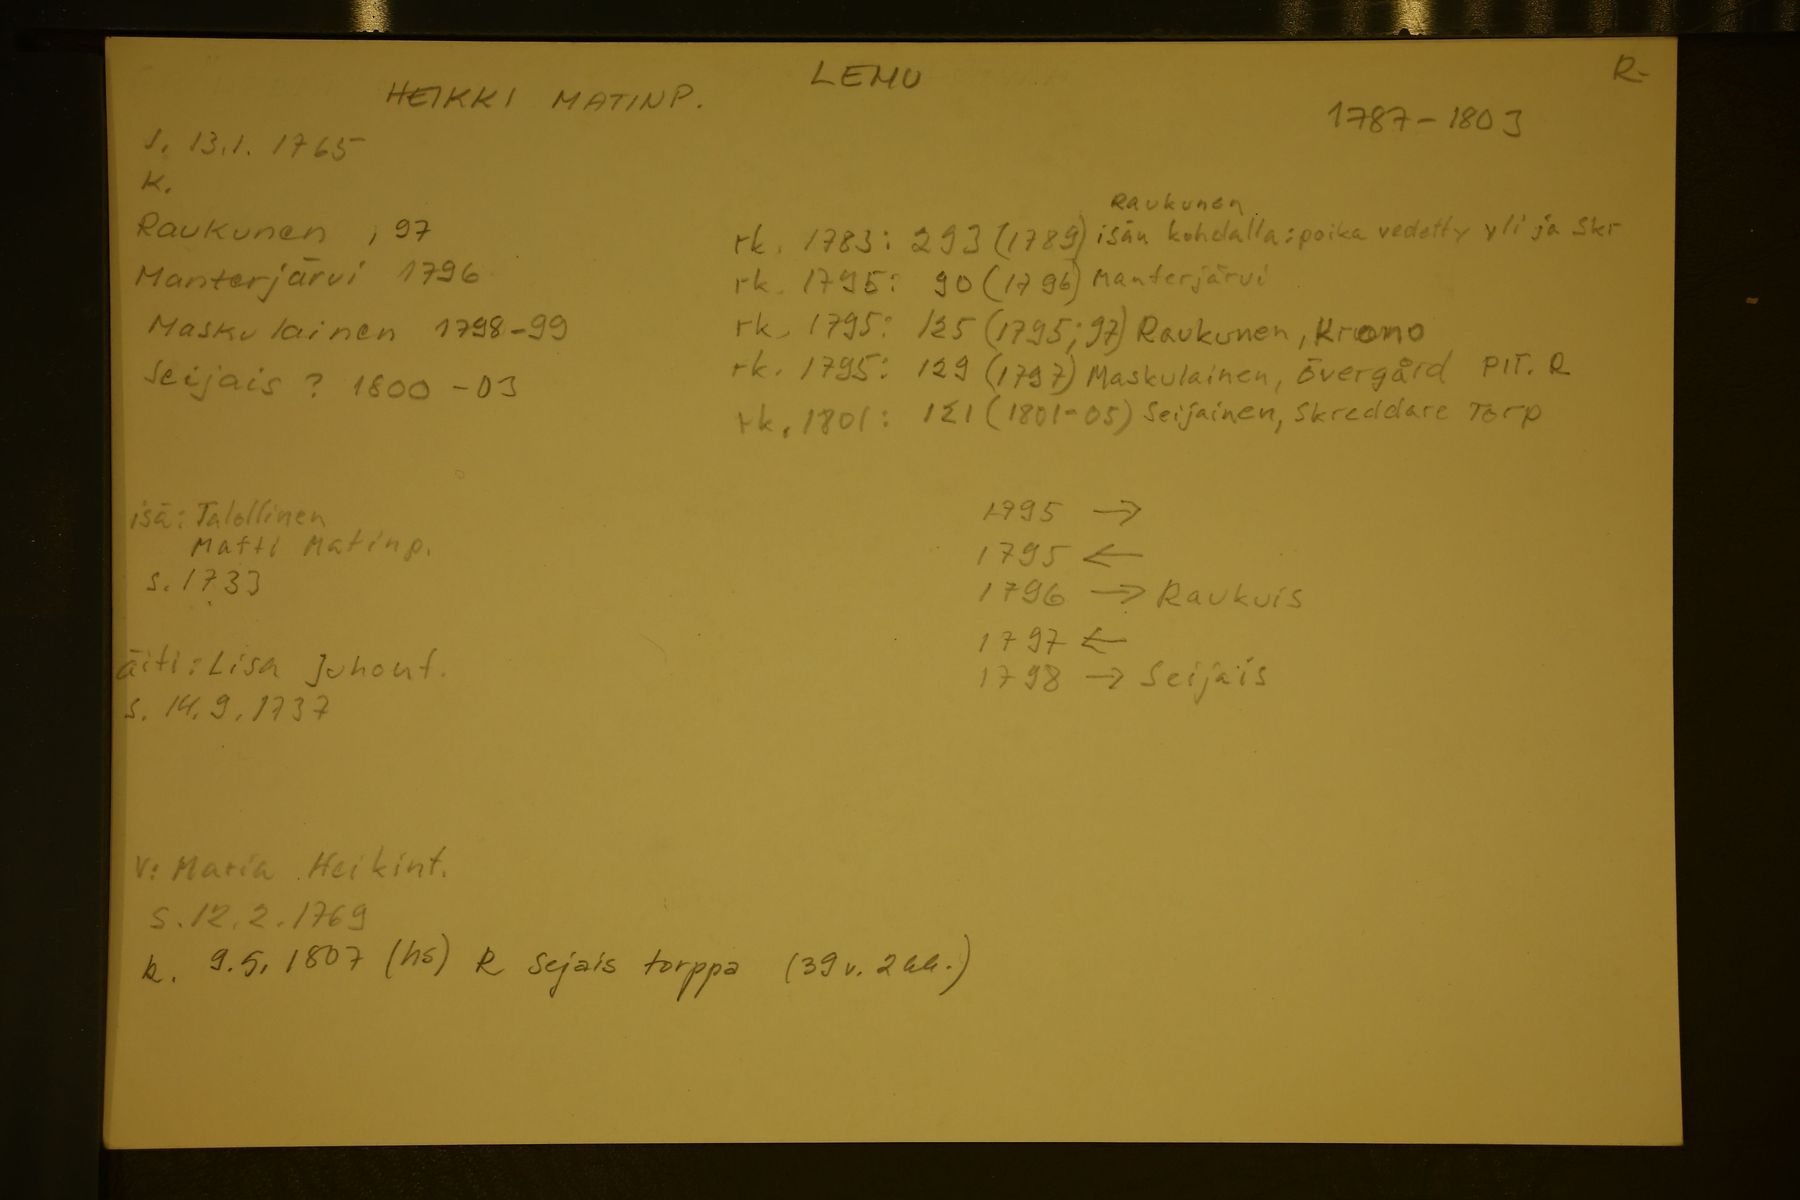 LEMU
R-
HEIKKI MATINP.
1787-1803
s. 13.1. 1765
k.
Raukunen , 97
Manterjärvi 1796
Maskulainen 1798-99
Seijais ? 1800 -03
Raukunen
rk. 1783: 293 (1789) isän kohdalla: poika vedetty yli ja Skr
rk. 1795: 90 (1796) Manterjärvi
rk. 1795: 125 (1795; 97) Raukunen, Krono
rk. 1795: 129 (1797) Maskulainen, Övergård PIT. R
rk. 1801: 121 (1801-05) Seijainen, Skreddare Torp
isä: Talollinen
Matti Matinp.
s. 1733
äiti: Lisa Juhont.
s. 14.9.1737
1795 →
1795 ←
1796 → Raukuis
1797 ←
1798 → Seijais
v: Maria Heikint.
s. 12.2.1769
k. 9.5.1807 (hs) R Sejais torppa (39 v. 2 kk.)